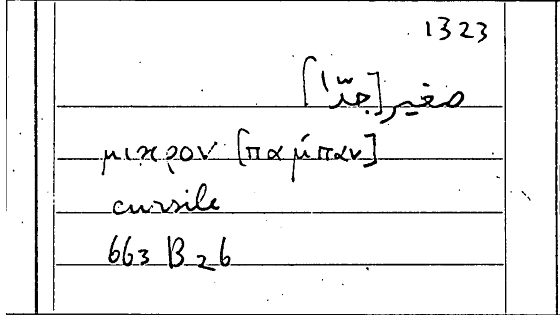 1323
صغير [جدّا]
μικρον [παμπαν]
663 B 26